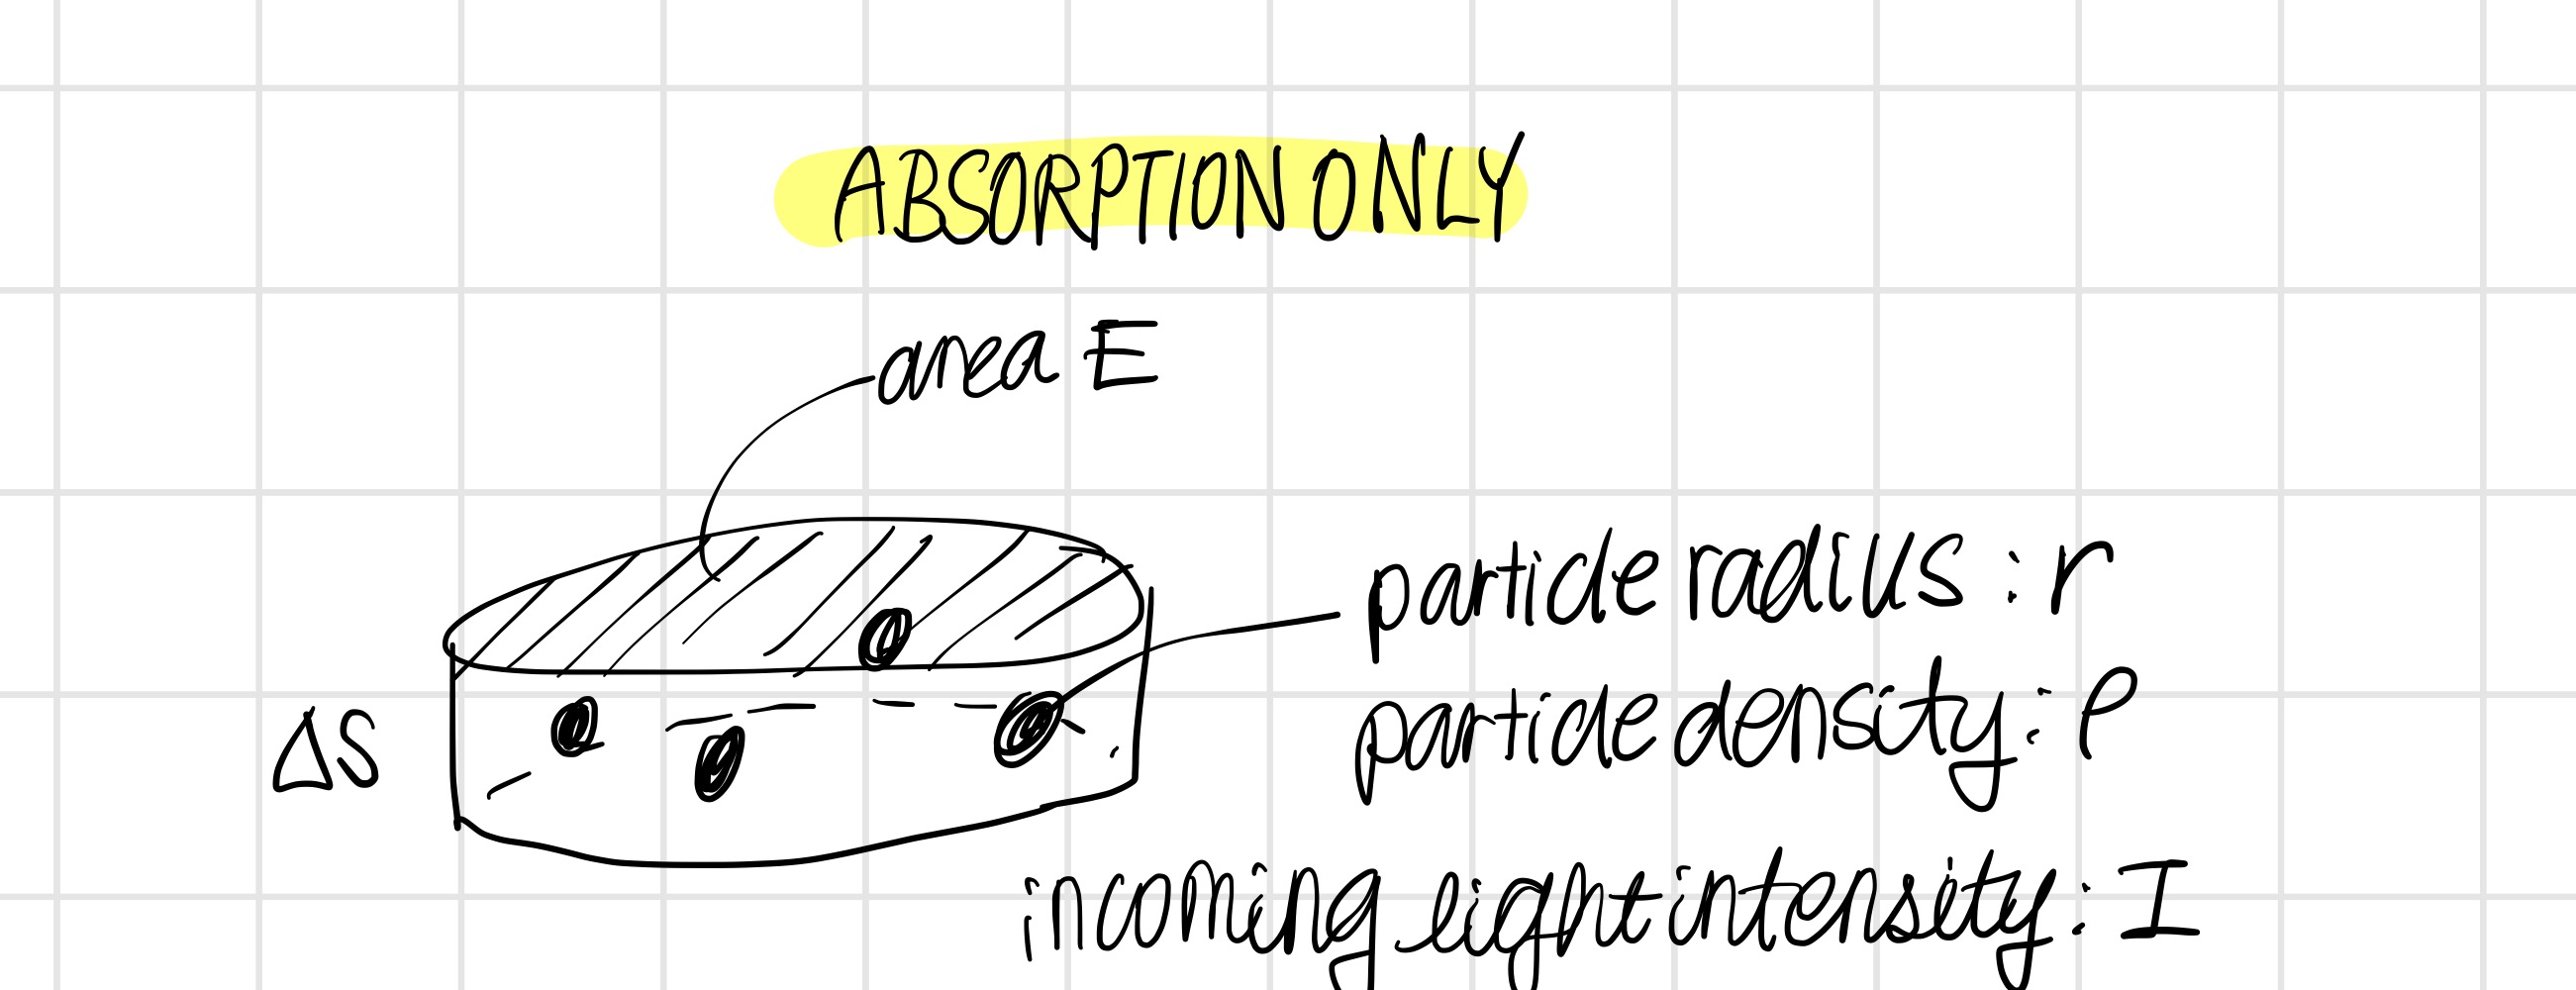 ABSORPTION ONLY
area E
particle radius : r
ΔS
particle density : ρ
incoming light intensity : I